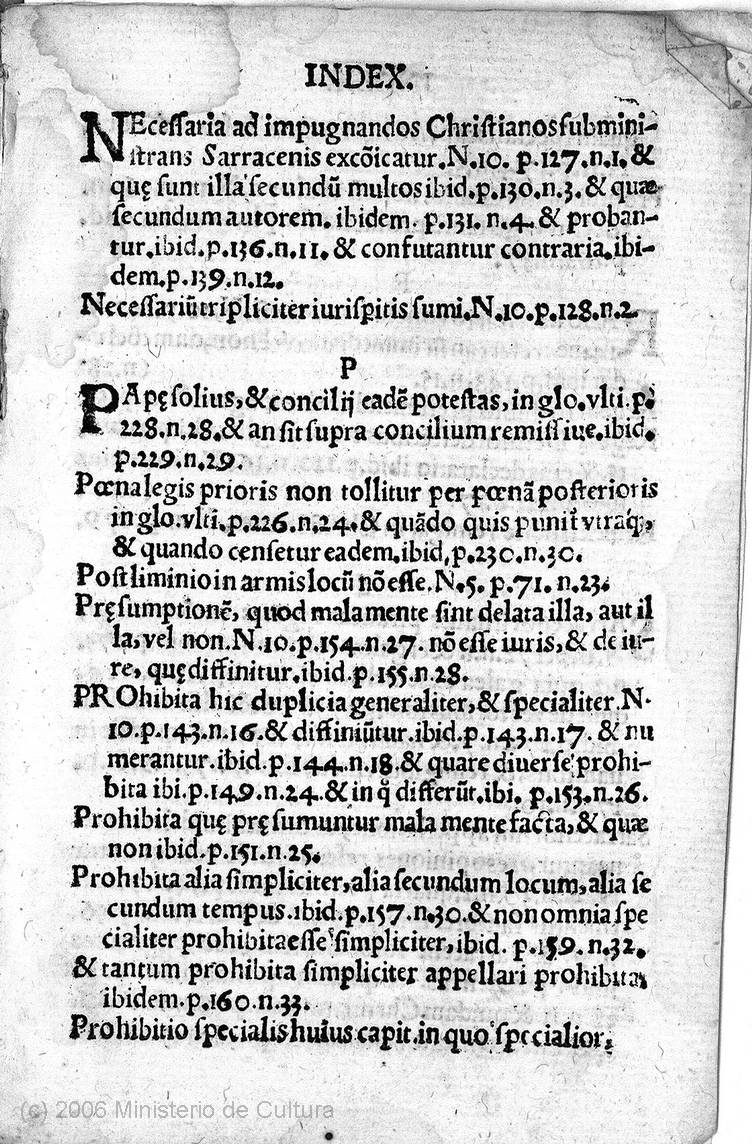 INDEX.
NEceſſaria ad impugnandos Chriſtianos ſubmini-
ſtrans Sarracenis excõicatur. N.10. p.127.n.1. &
quę ſunt illa ſecundũ multos ibid.p.130.n.3. & quæ
ſecundum autorem. ibidem. p.131. n.4. & proban-
tur.ibid.p.136.n.11. & confutantur contraria.ibi-
dem.p.139.n.12.
Neceſſariũ tripliciter iuriſꝑitis ſumi.N.10.p.128.n.2.
P
PApę ſolius, & concilij eadẽ poteſtas, in glo.vlti.p.
228.n.28.& an ſit ſupra concilium remiſſiue.ibid.
p.229.n.29.
Pœna legis prioris non tollitur per pœnã poſterioris
in glo.vlti.p.226.n.24.& quãdo quis punit̃ vtraq;,
& quando cenſetur eadem.ibid,p.230.n.30.
Poſtliminio in armis locũ nõ eſſe.N.5. p.71. n.23.
Pręſumptionẽ, quod mala mente ſint delata illa, aut il
la, vel non.N.10.p.154.n.27. nõ eſſe iuris, & de iu-
re, quę diffinitur.ibid.p.155.n.28.
PROhibita hic duplicia generaliter, & ſpecialiter.N.
10.p.143.n.16.& diffiniũtur.ibid.p.143.n.17. & nu
merantur.ibid.p.144.n.18.& quare diuerſe prohi-
bita ibi.p.149.n.24.& in q̊ differũt.ibi. p.153.n.26.
Prohibita quę pręſumuntur mala mente facta, & quæ
non ibid.p.151.n.25.
Prohibita alia ſimpliciter, alia ſecundum locum, alia ſe
cundum tempus.ibid.p.157.n.30.& non omnia ſpe
cialiter prohibita eſſe ſimpliciter, ibid. p.159. n.32.
& tantum prohibita ſimpliciter appellari prohibita,
ibidem.p.160.n.33.
Prohibitio ſpecialis huius capit.in quo ſpecialior,
(c) 2006 Ministerio de Cultura